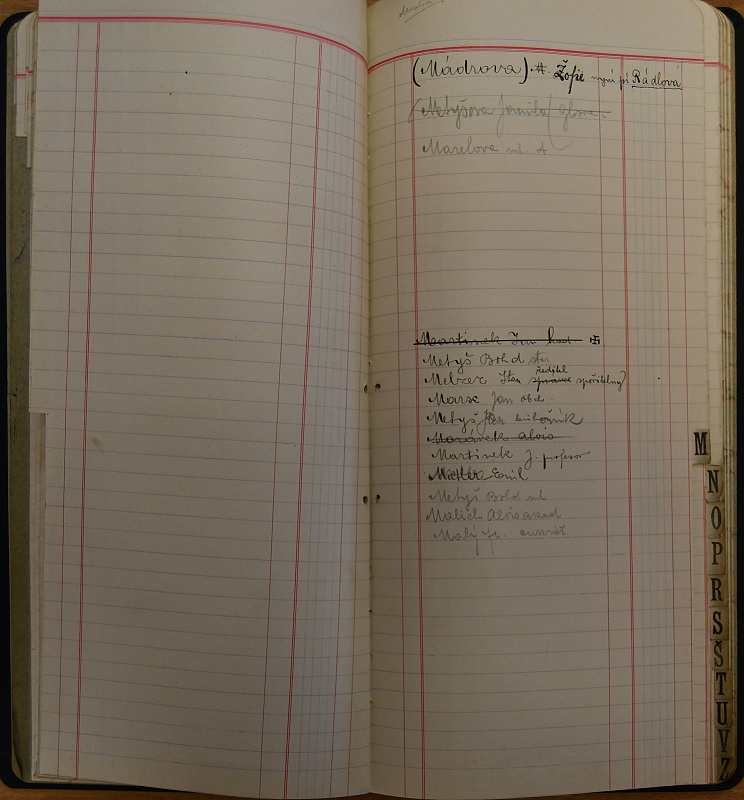 (Mádrova) Žofie nyní př Rádlová
Metyšova Jarmila
Marelova ml. A
Martinek Jan
Metyš Bohd st
Melzer ředitel
správce spořitelny
Marše Jan obch
Metyš Jan knihovník
Morávek Alois
Martinek J. profesor
Emil
Metyš Bohd ml
Malich Alois akad
Malý
M
N
O
P
R
S
Š
T
U
V
Z